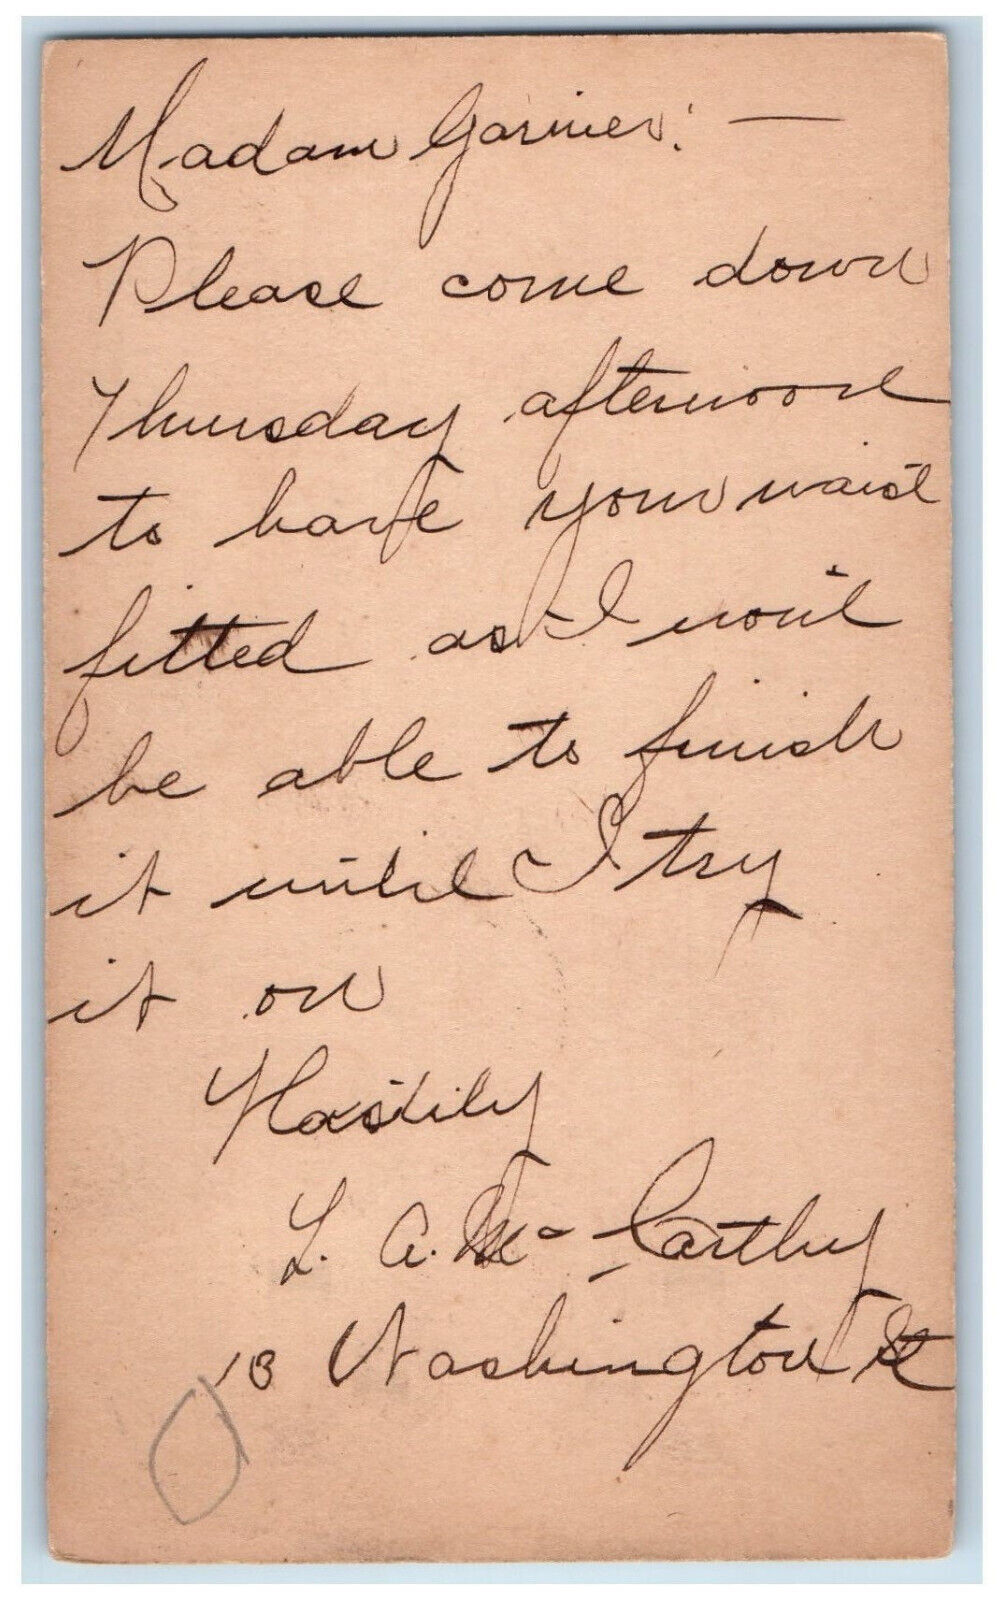 Madam Garnier: —
Please come down
Thursday afternoon
to have your waist
fitted as I won't
be able to finish
it until I try
it on
Hastily
L. A. Mc-Carthy
18 Washington St